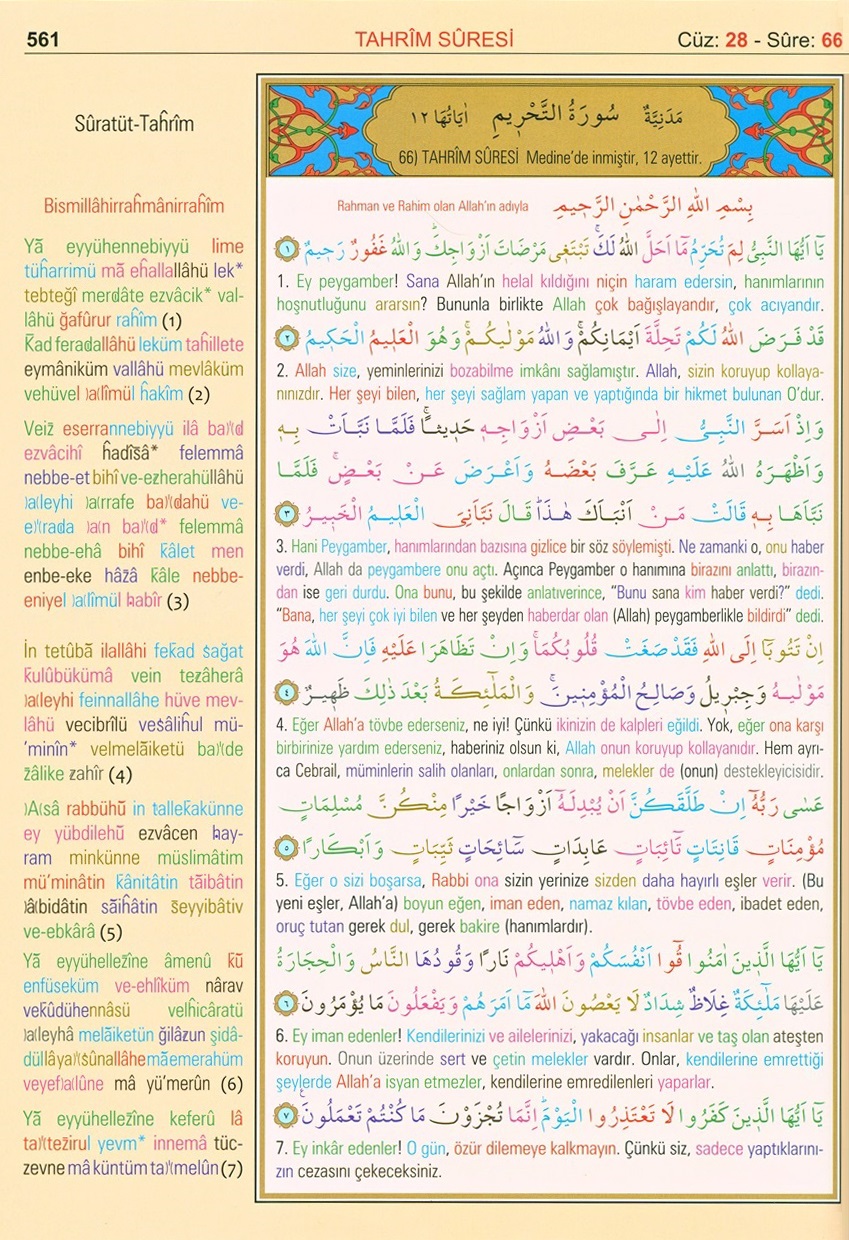 561
TAHRÎM SÛRESİ
Cüz: 28 - Sûre: 66
Sûratüt-Taĥrîm
Bismillâhirraĥmânirraĥîm
Yā̃ eyyühennebiyyü lime
tüĥarrimü mā̃ eĥallallâhü lek*
tebteğî merdâte ezvâcik* val-
lâhü ğafûrur raĥîm (1)
Ḱad feradallâhü leküm taĥillete
eymâniküm vallâhü mevlâküm
vehüvel )a(lîmül ĥakîm (2)
Veiz̄ eserrannebiyyü ilâ ba)'(d
ezvâcihî ĥadîs̄â* felemmâ
nebbe-et bihî ve-eżherahüllâhü
)a(leyhi )a(rrafe ba)'(dahü ve-
e)'(rada )a(n ba)'(d* felemmâ
nebbe-ehâ bihî ḱâlet men
enbe-eke hâz̄â ḱâle nebbe-
eniyel )a(lîmül ḣabîr (3)
İn tetûbā̃ ilallâhi feḱad ṡağat
ḱulûbükümâ vein teżâherâ
)a(leyhi feinnallâhe hüve mev-
lâhü vecibrîlü veṡâliĥul mü-
'minîn* velmelā̃iketü ba)'(de
z̄âlike żahîr (4)
)A(sâ rabbühū̃ in ṫalleḱakünne
ey yübdilehū̃ ezvâcen ḣay-
ram minkünne müslimâtim
mü'minâtin ḱânitâtin tā̃ibâtin
)â(bidâtin sā̃iĥâtin s̄eyyibâtiv
ve-ebkârâ (5)
Yā̃ eyyühellez̄îne âmenû ḱū̃
enfüseküm ve-ehlîküm nârav
veḱûdühennâsü velĥicâratü
)a(leyhâ melā̃iketün ğilâżun şidâ-
düllâya)'(ṡûnallâhe mā̃ emerahüm
veyef)a(lûne mâ yü'merûn (6)
Yā̃ eyyühellez̄îne keferû lâ
ta)'(tez̄irul yevm* innemâ tüc-
zevne mâ küntüm ta)'(melûn (7)
مَدَنِيَّةٌ سُورَةُ التَّحْرِيمِ اٰيَاتُهَا ١٢
66) TAHRÎM SÛRESİ Medine'de inmiştir, 12 ayettir.
Rahman ve Rahim olan Allah'ın adıyla بِسْمِ اللّٰهِ الرَّحْمٰنِ الرَّحِيمِ
يَٓا اَيُّهَا النَّبِيُّ لِمَ تُحَرِّمُ مَٓا اَحَلَّ اللّٰهُ لَكَۚ تَبْتَغ۪ي مَرْضَاتَ اَزْوَاجِكَۜ وَاللّٰهُ غَفُورٌ رَح۪يمٌ ﴿١﴾
1. Ey peygamber! Sana Allah'ın helal kıldığını niçin haram edersin, hanımlarının
hoşnutluğunu ararsın? Bununla birlikte Allah çok bağışlayandır, çok acıyandır.
قَدْ فَرَضَ اللّٰهُ لَكُمْ تَحِلَّةَ اَيْمَانِكُمْۚ وَاللّٰهُ مَوْلٰيكُمْۚ وَهُوَ الْعَل۪يمُ الْحَك۪يمُ ﴿٢﴾
2. Allah size, yeminlerinizi bozabilme imkânı sağlamıştır. Allah, sizin koruyup kollaya-
nınızdır. Her şeyi bilen, her şeyi sağlam yapan ve yaptığında bir hikmet bulunan O'dur.
وَاِذْ اَسَرَّ النَّبِيُّ اِلٰى بَعْضِ اَزْوَاجِه۪ حَد۪يثًاۚ فَلَمَّا نَبَّاَتْ بِه۪
وَاَظْهَرَهُ اللّٰهُ عَلَيْهِ عَرَّفَ بَعْضَهُ وَاَعْرَضَ عَنْ بَعْضٍۚ فَلَمَّا
نَبَّاَهَا بِه۪ قَالَتْ مَنْ اَنْبَاَكَ هٰذَاۜ قَالَ نَبَّاَنِيَ الْعَل۪يمُ الْخَب۪يرُ ﴿٣﴾
3. Hani Peygamber, hanımlarından bazısına gizlice bir söz söylemişti. Ne zamanki o, onu haber
verdi, Allah da peygambere onu açtı. Açınca Peygamber o hanımına birazını anlattı, birazın-
dan ise geri durdu. Ona bunu, bu şekilde anlatıverince, "Bunu sana kim haber verdi?" dedi.
"Bana, her şeyi çok iyi bilen ve her şeyden haberdar olan (Allah) peygamberlikle bildirdi" dedi.
اِنْ تَتُوبَٓا اِلَى اللّٰهِ فَقَدْ صَغَتْ قُلُوبُكُمَاۚ وَاِنْ تَظَاهَرَا عَلَيْهِ فَاِنَّ اللّٰهَ هُوَ
مَوْلٰيهُ وَجِبْر۪يلُ وَصَالِحُ الْمُؤْمِن۪ينَۚ وَالْمَلٰٓئِكَةُ بَعْدَ ذٰلِكَ ظَه۪يرٌ ﴿٤﴾
4. Eğer Allah'a tövbe ederseniz, ne iyi! Çünkü ikinizin de kalpleri eğildi. Yok, eğer ona karşı
birbirinize yardım ederseniz, haberiniz olsun ki, Allah onun koruyup kollayanıdır. Hem ayrı-
ca Cebrail, müminlerin salih olanları, onlardan sonra, melekler de (onun) destekleyicisidir.
عَسٰى رَبُّهُٓ اِنْ طَلَّقَكُنَّ اَنْ يُبْدِلَهُٓ اَزْوَاجًا خَيْرًا مِنْكُنَّ مُسْلِمَاتٍ
مُؤْمِنَاتٍ قَانِتَاتٍ تَٓائِبَاتٍ عَابِدَاتٍ سَٓائِحَاتٍ ثَيِّبَاتٍ وَاَبْكَارًا ﴿٥﴾
5. Eğer o sizi boşarsa, Rabbi ona sizin yerinize sizden daha hayırlı eşler verir. (Bu
yeni eşler, Allah'a) boyun eğen, iman eden, namaz kılan, tövbe eden, ibadet eden,
oruç tutan gerek dul, gerek bakire (hanımlardır).
يَٓا اَيُّهَا الَّذ۪ينَ اٰمَنُوا قُٓوا اَنْفُسَكُمْ وَاَهْل۪يكُمْ نَارًا وَقُودُهَا النَّاسُ وَالْحِجَارَةُ
عَلَيْهَا مَلٰٓئِكَةٌ غِلَاظٌ شِدَادٌ لَا يَعْصُونَ اللّٰهَ مَٓا اَمَرَهُمْ وَيَفْعَلُونَ مَا يُؤْمَرُونَ ﴿٦﴾
6. Ey iman edenler! Kendilerinizi ve ailelerinizi, yakacağı insanlar ve taş olan ateşten
koruyun. Onun üzerinde sert ve çetin melekler vardır. Onlar, kendilerine emrettiği
şeylerde Allah'a isyan etmezler, kendilerine emredilenleri yaparlar.
يَٓا اَيُّهَا الَّذ۪ينَ كَفَرُوا لَا تَعْتَذِرُوا الْيَوْمَۜ اِنَّمَا تُجْزَوْنَ مَا كُنْتُمْ تَعْمَلُونَ۟ ﴿٧﴾
7. Ey inkâr edenler! O gün, özür dilemeye kalkmayın. Çünkü siz, sadece yaptıklarını-
zın cezasını çekeceksiniz.